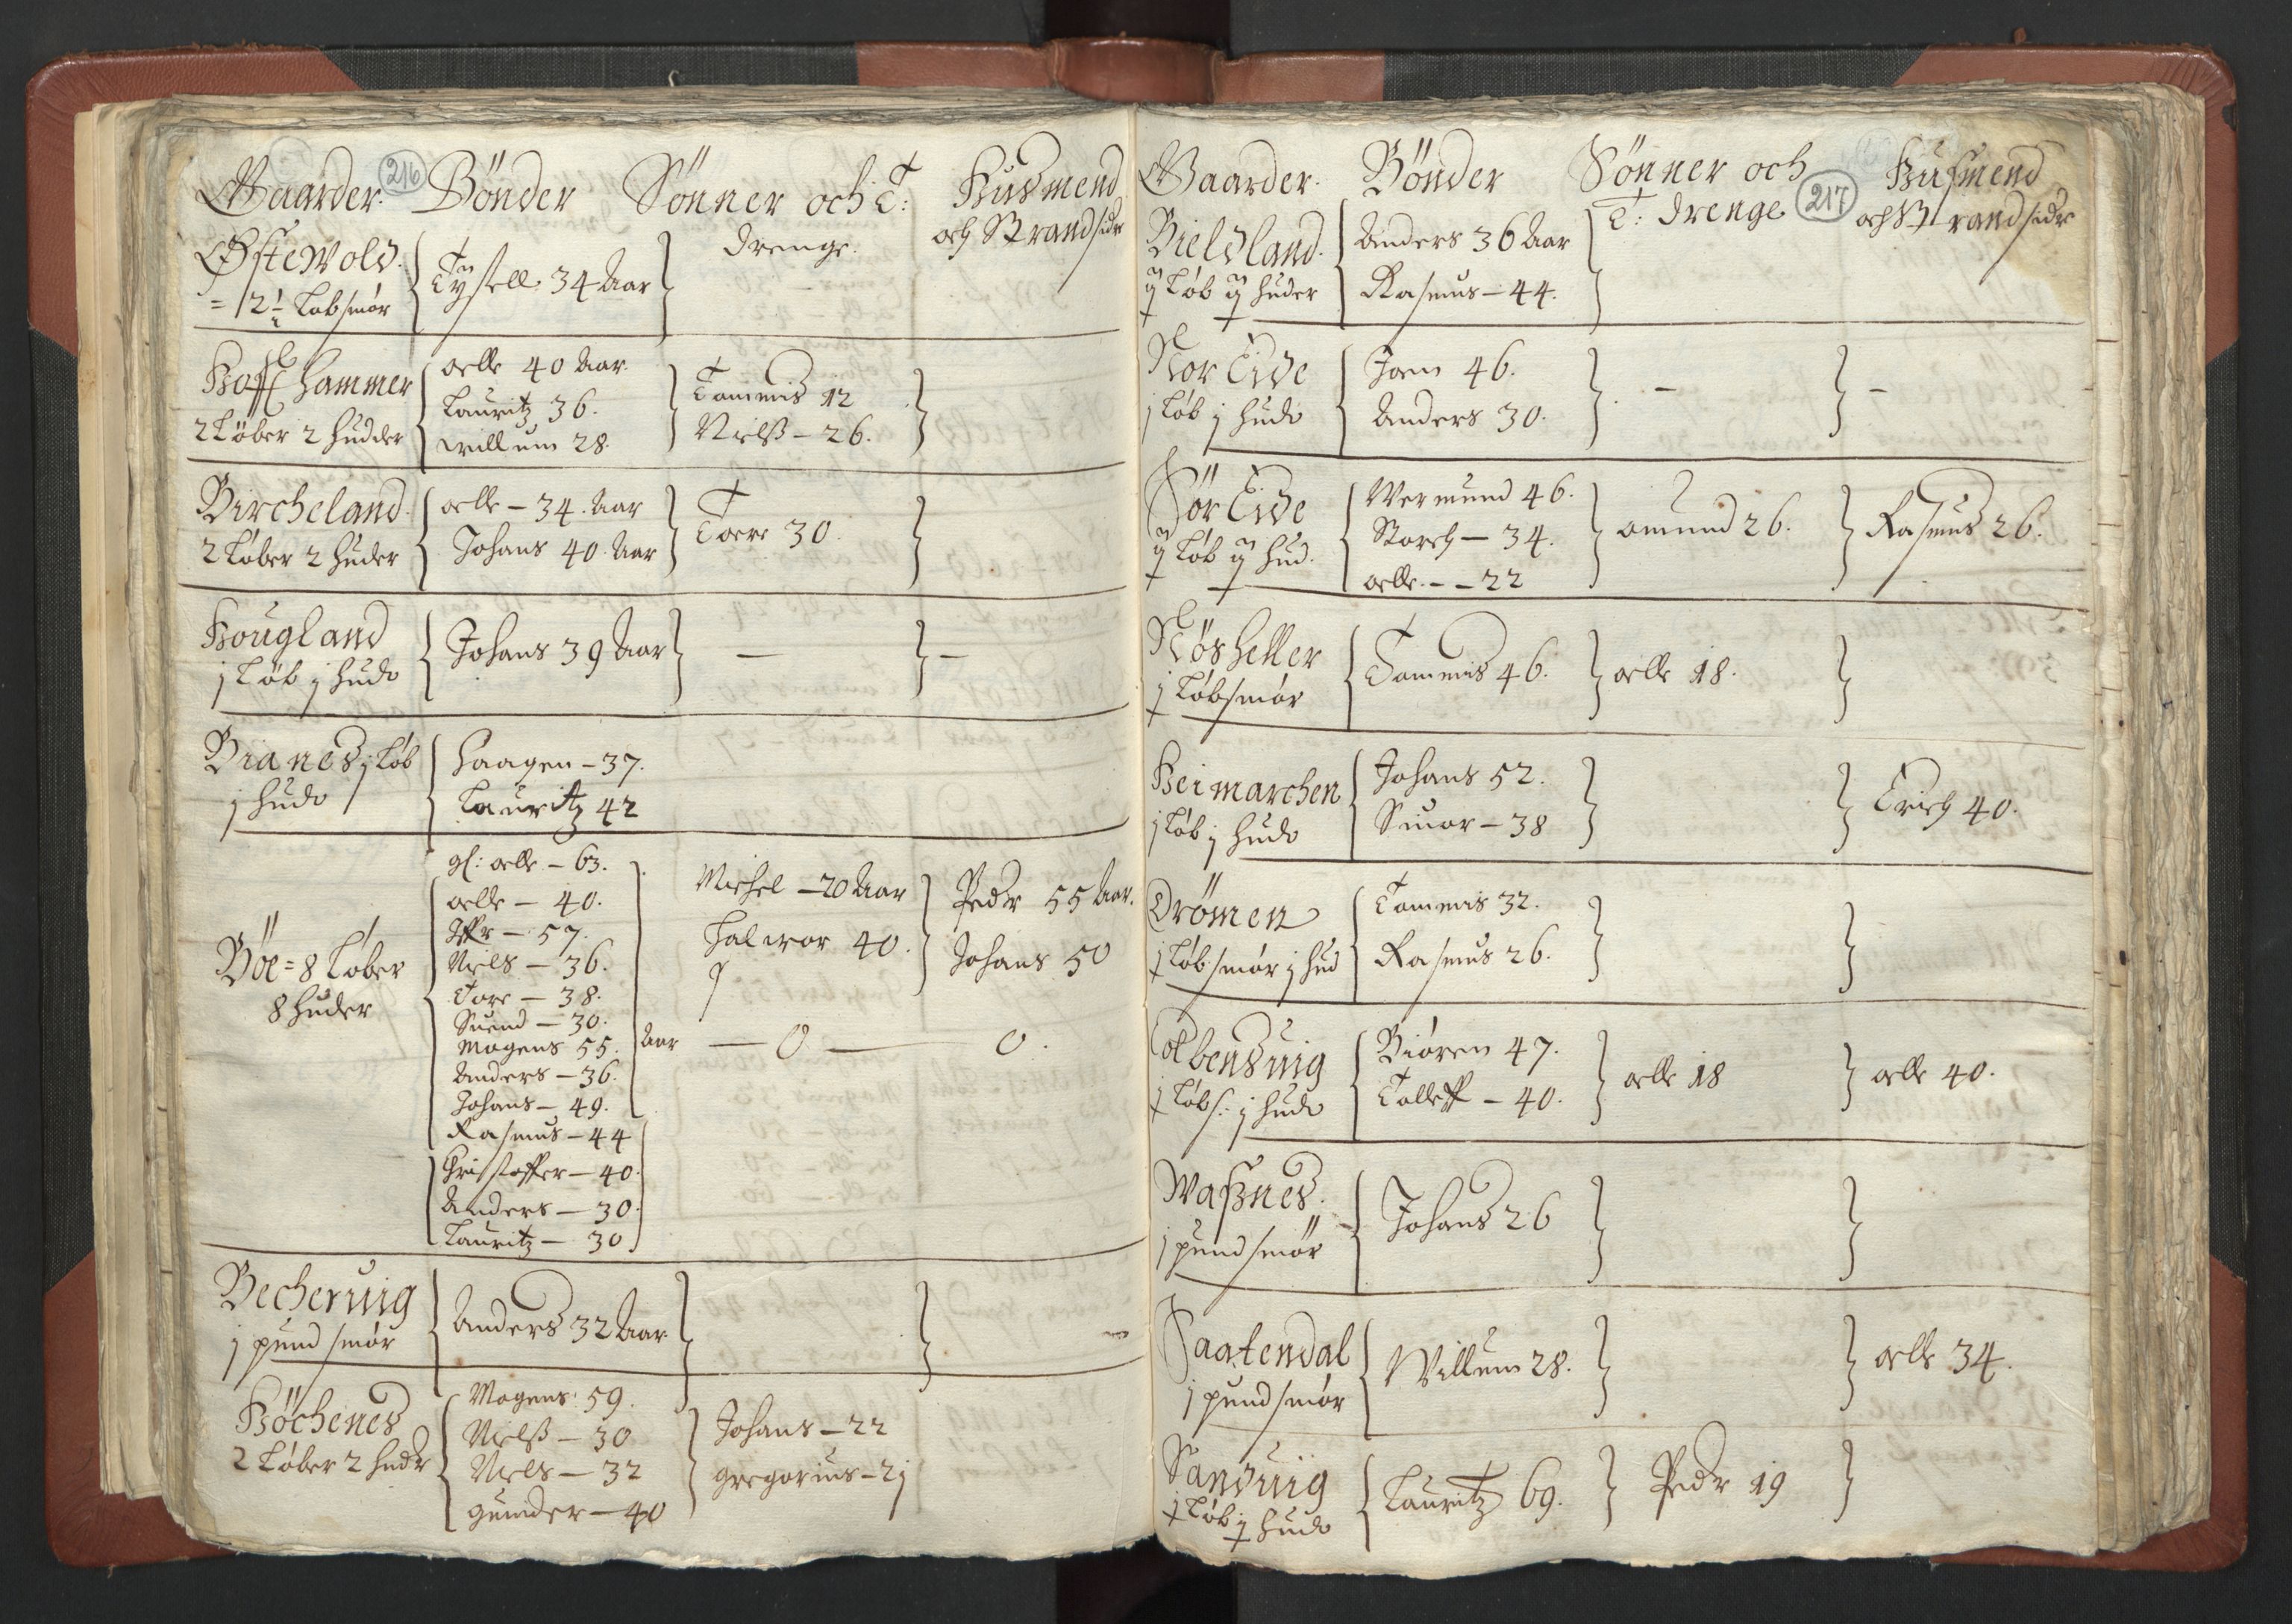 Gaarder. Bönder Sönner och T: Husmend
216
drenge. och Strandsidr
Østewold.
= 12½ Løbsmör
Tysell 34 Aar
Hoff hammer
2 Löber 2 Hudder
oelle 40 Aar
Lauritz 36.
willum 28.
Tommis 12
Nielß – 26.
Bircheland.
2 Løber 2 Huder
oelle – 34. Aar
Johans 40. Aar
Toere 30.
Hougland
j Löb j hude
Johans 39 Aar
—
—
Bianes j Løb
j hude
Haagen – 37.
Lauritz 42
Böe = 8 Løber
8 Huder
gl: oelle – 63.
oelle – 40.
Iffr – 57.
Niels – 36.
Tore – 38.
Suend – 30.
Mogens 55.
Anders – 36.
Johans – 49.
Rasmus – 44
Christoffer – 40.
Anders – 30.
Lauritz – 30
Aar
Michel – 20 Aar
Halwor 40.
Pedr 55 Aar.
Johans 50
— 0 — 0.
Becheruig
j pund smör
Anders 32 Aar
Höchenes
2 Løber 2 Hudr
Mogens: 59.
Nielß – 30
Niels – 32
gunder – 40
Johans – 22
gregorius – 2j
Gaarder. Bönder Sönner och Husmend
T: drenge 217 och Strandsidr
Bieldland.
Løb Huder
Anders 36 Aar
Rasmus – 44.
Nor Eide
j Løb j hude
Joen 46.
Anders 30.
–
–
Sör Eide
Løb Hud.
Wermund 46.
Storch – 34.
oelle. – – 22
omund 26.
Rasmus 26.
Nösheller
j Løbsmör
Tommis 46.
oelle 18.
Heimarchen
j Løb j hude
Johans 52.
Siuor – 38
Erich 40.
Drömen
j Løb smör j hud
Tommis 32.
Rasmus 26.
Colbensuig
j Løb s: j hude
Biören 47.
Tolleff – 40.
oelle 18
oelle 40.
Waßnes.
j pund smör
Johans 26
Saatendal
j pund smör
Willum 28.
oelle 34.
Sanduig
j Løb j hude
Lauritz 69.
Pedr 19